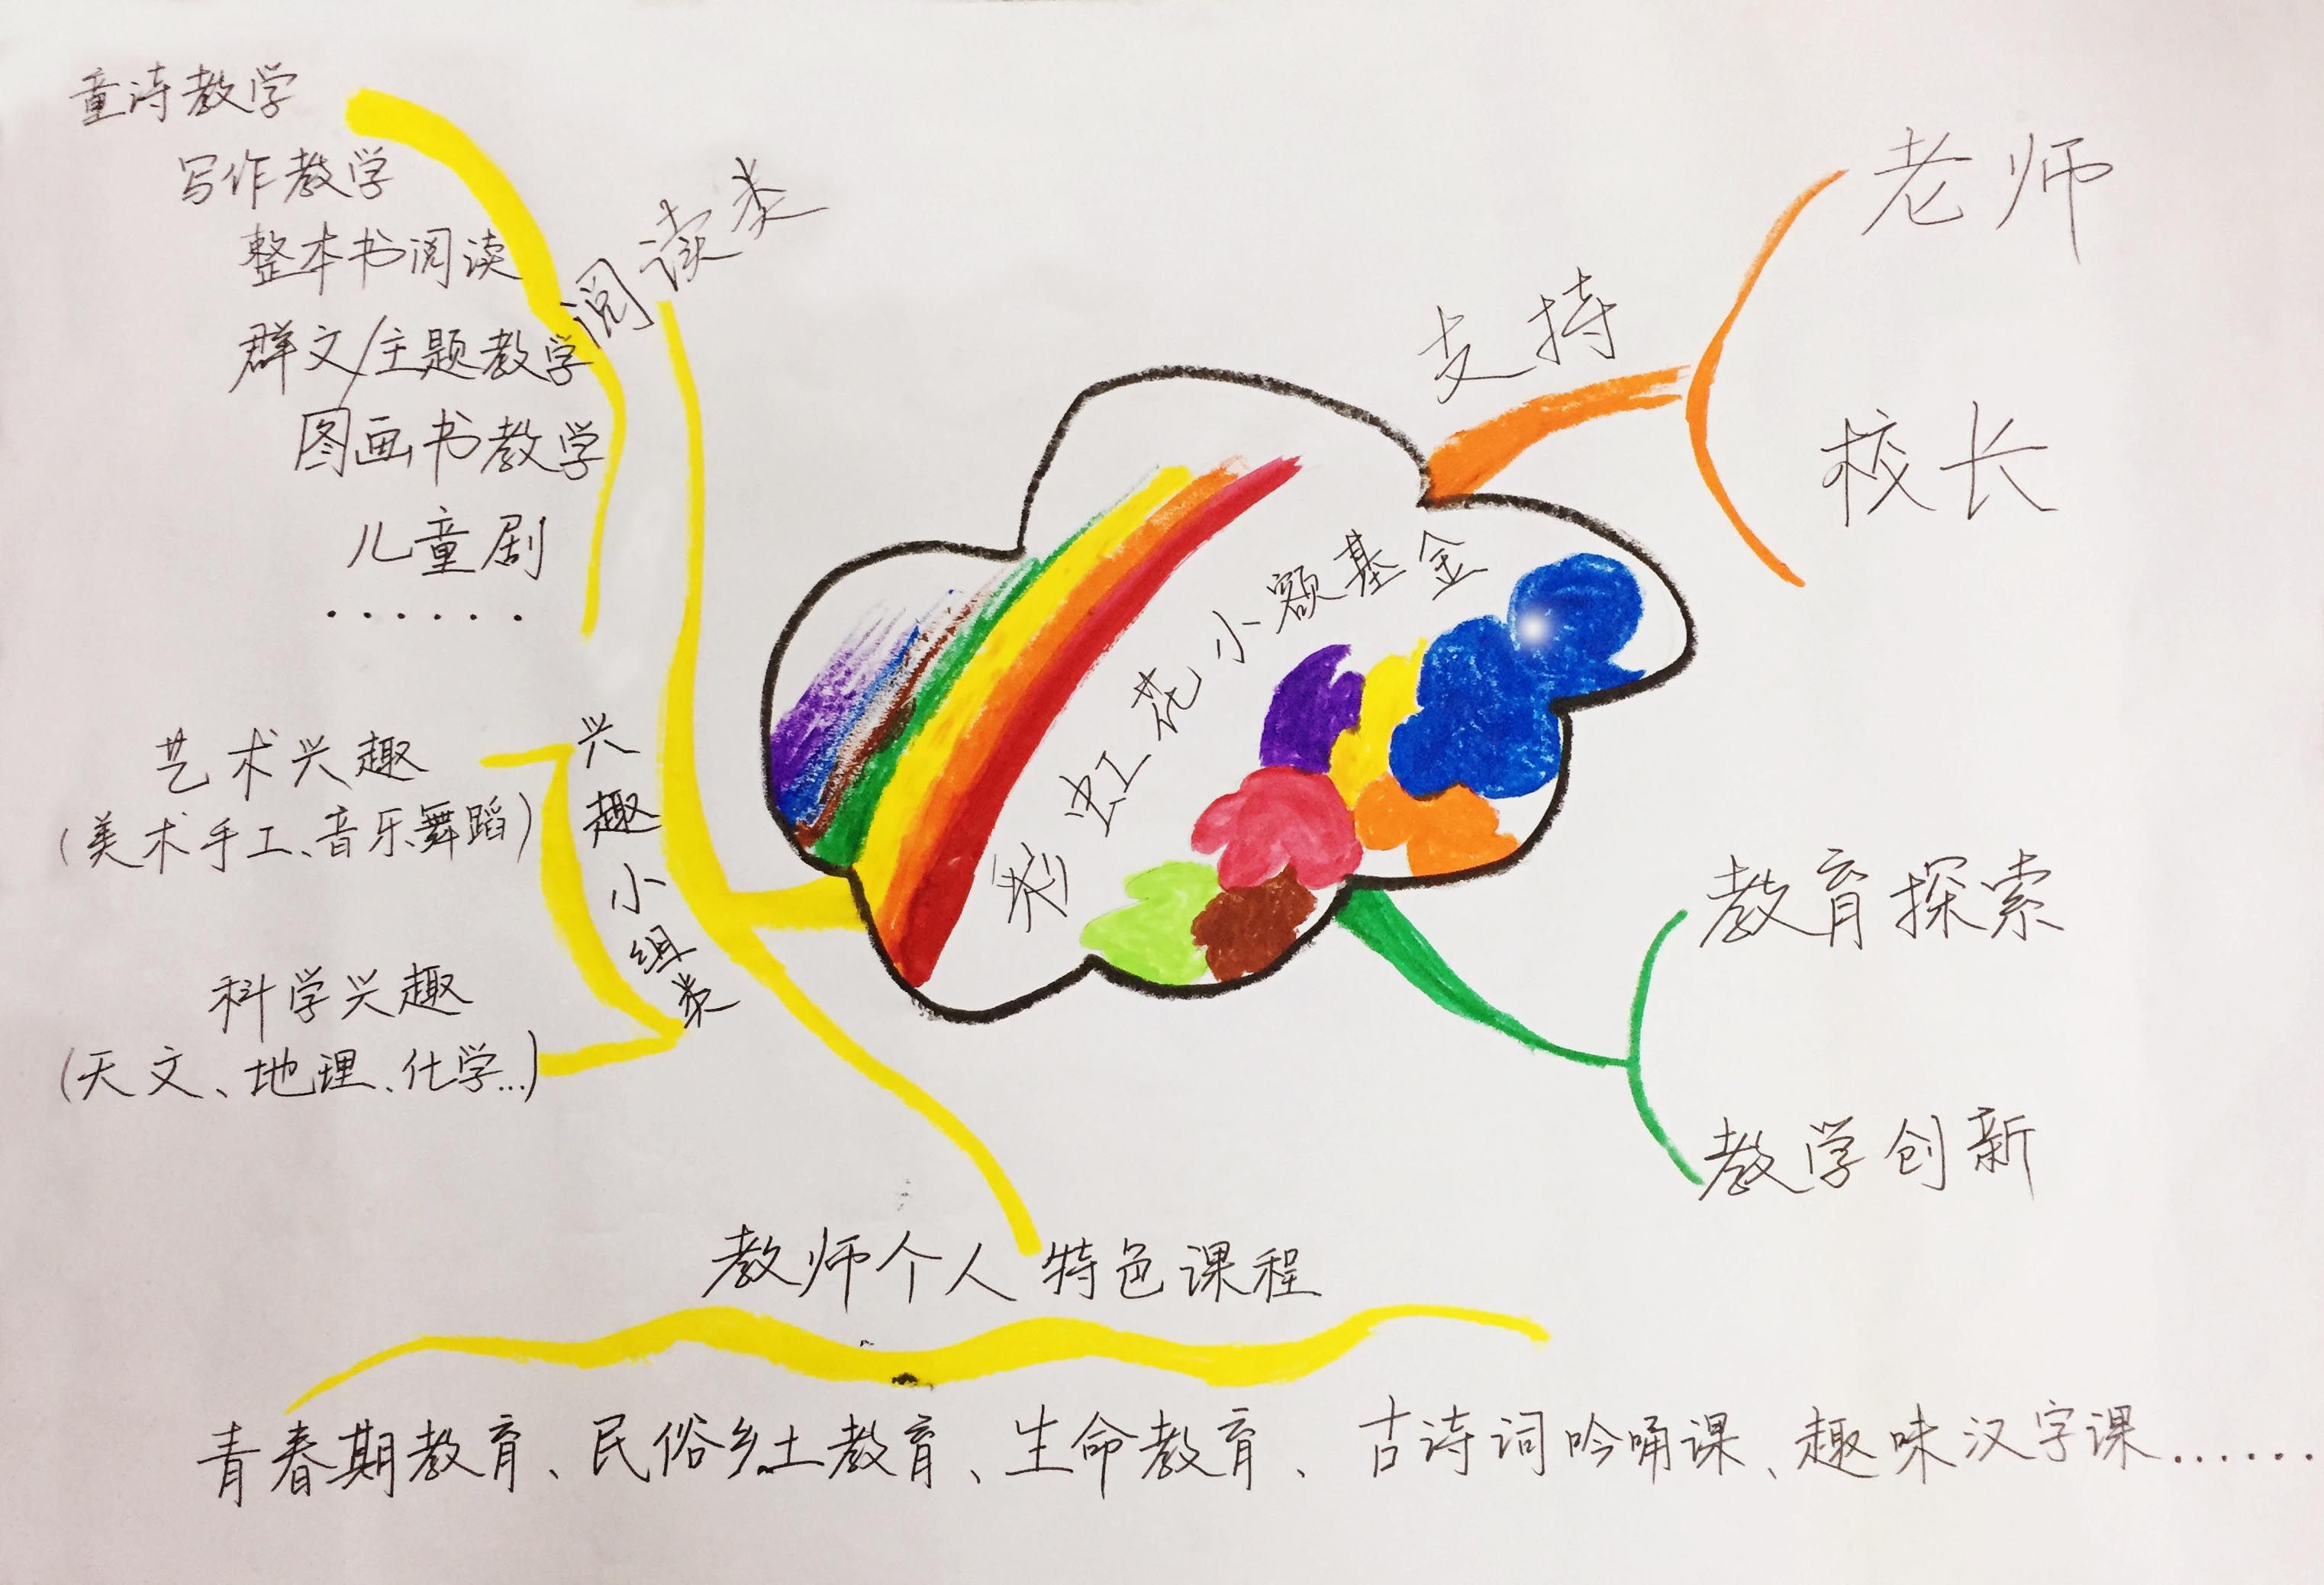 童诗教学
写作教学
整本书阅读
群文/主题教学
图画书教学
儿童剧
......
阅读类
艺术兴趣
(美术手工、音乐舞蹈)
科学兴趣
(天文、地理、化学...)
兴趣小组类
彩虹花小额基金
支持
老师
校长
教育探索
教学创新
教师个人特色课程
青春期教育、民俗乡土教育、生命教育、古诗词吟诵课、趣味汉字课......